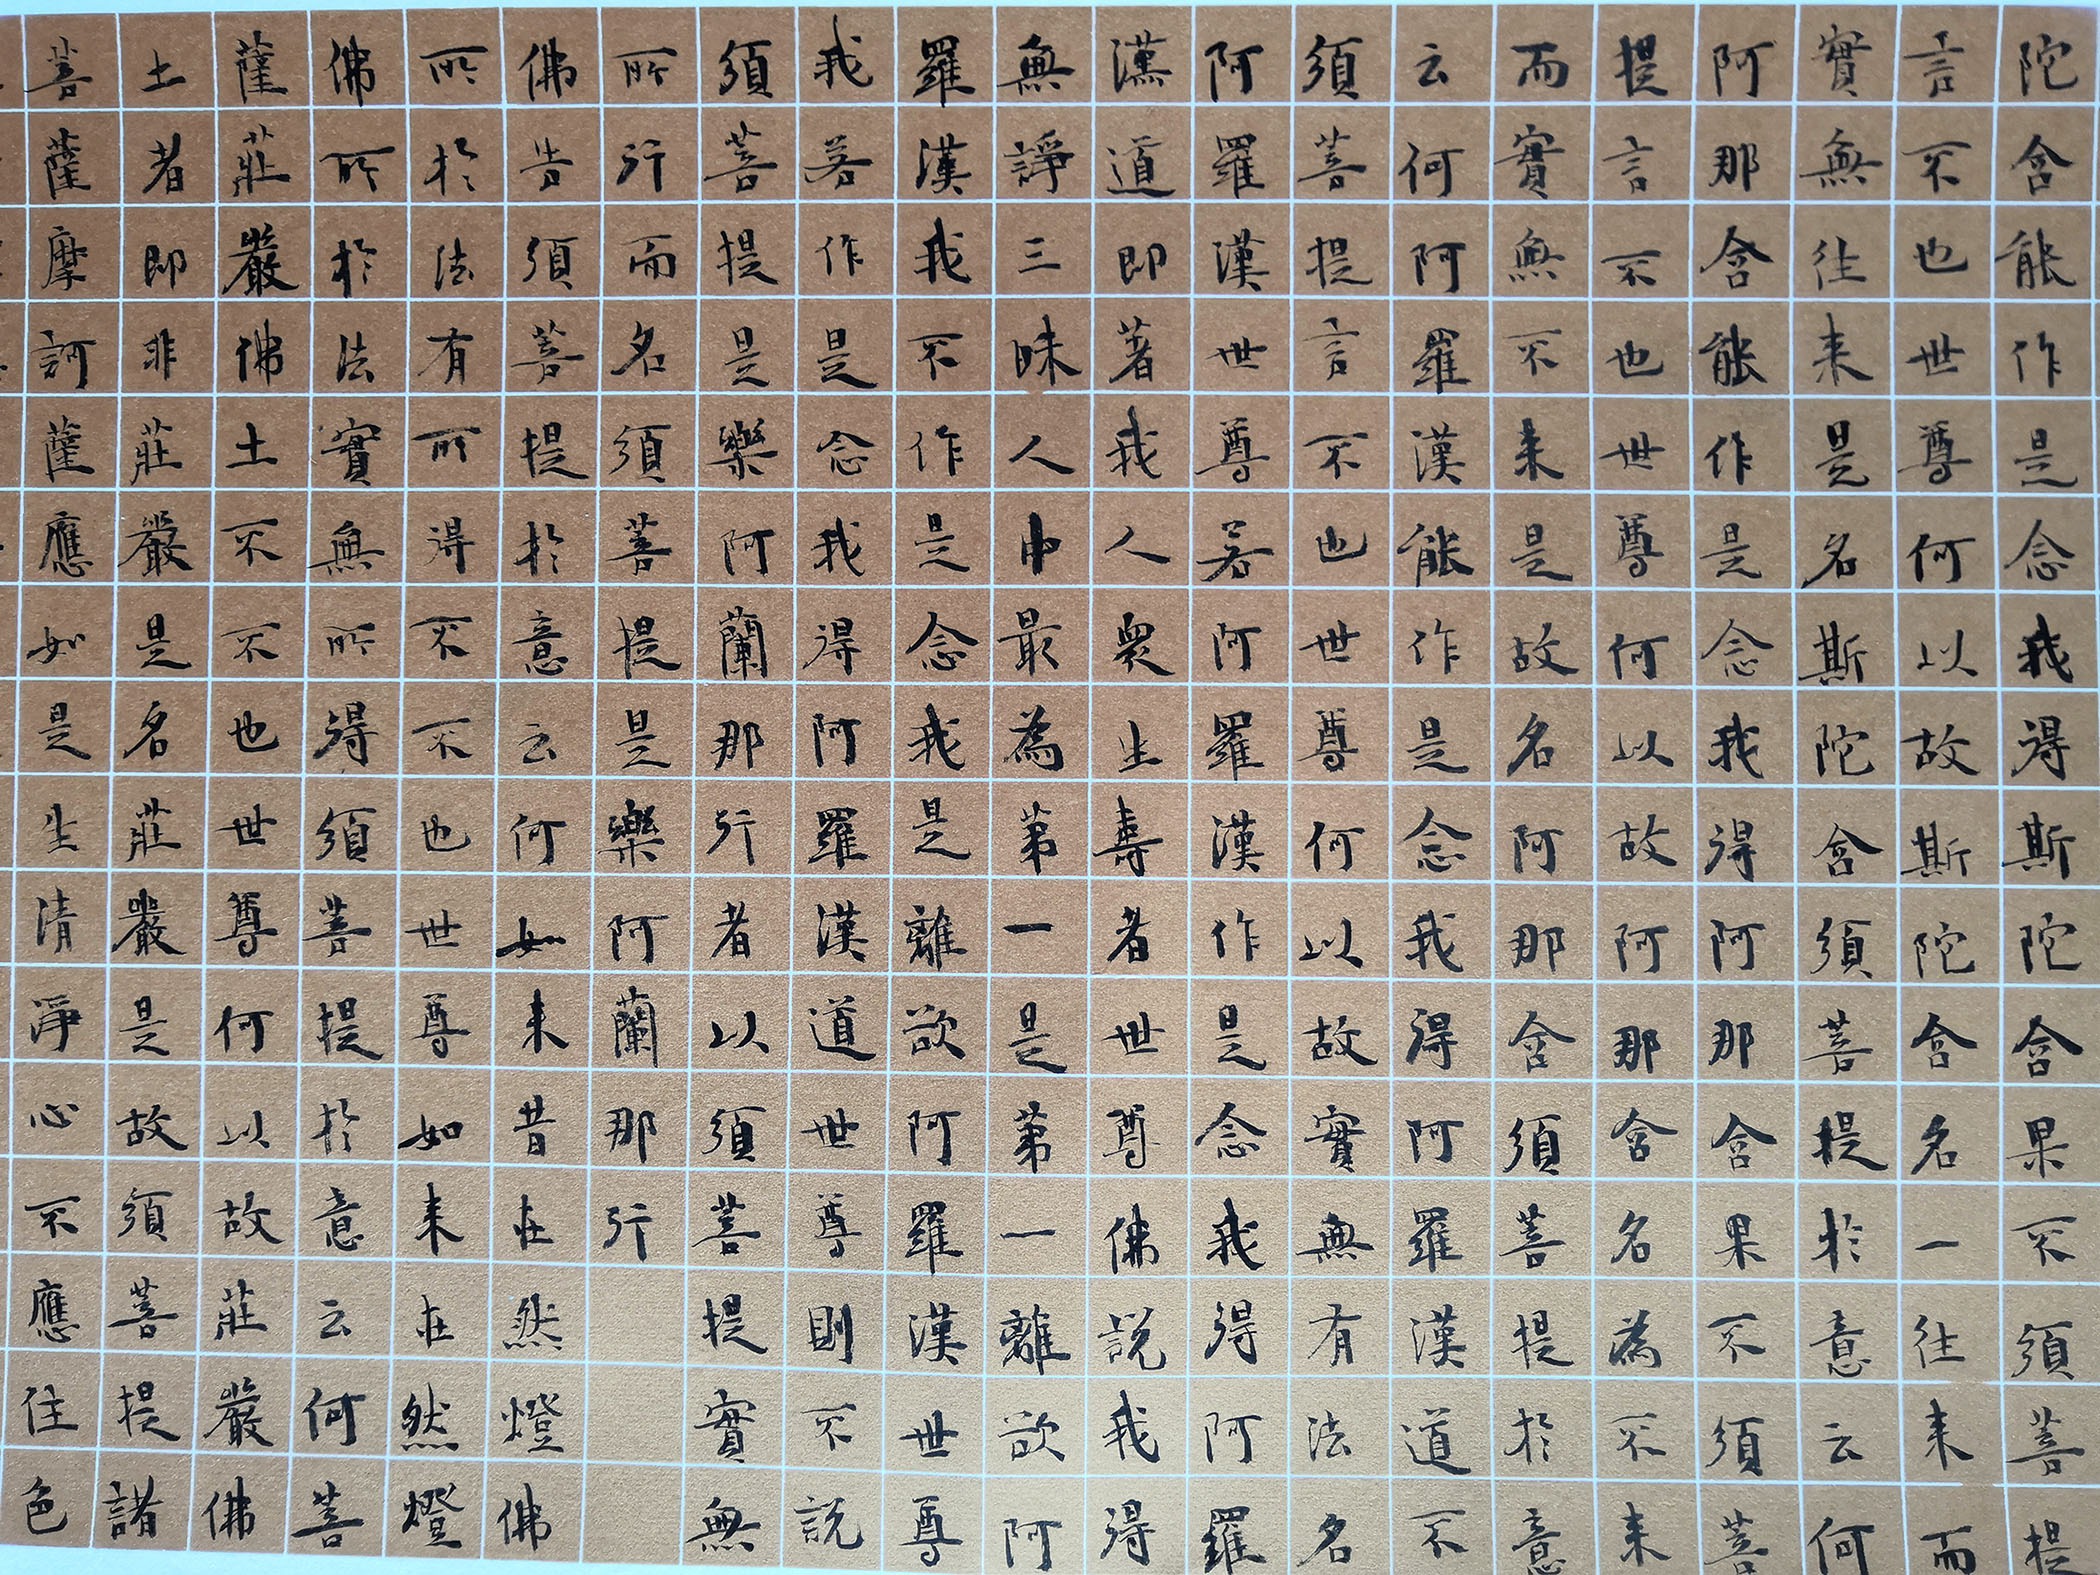 陀含能作是念我得斯陀含果不須菩提
言不也世尊何以故斯陀含名一往来而
實無往来是名斯陀含須菩提於意云何
阿那含能作是念我得阿那含果不須菩
提言不也世尊何以故阿那含名為不来
而實無不来是故名阿那含須菩提於意
云何阿羅漢能作是念我得阿羅漢道不
須菩提言不也世尊何以故實無有法名
阿羅漢世尊若阿羅漢作是念我得阿羅
漢道即著我人衆生壽者世尊佛說我得
無諍三昧人中最為第一是第一離欲阿
羅漢我不作是念我是離欲阿羅漢世尊
我若作是念我得阿羅漢道世尊則不說
須菩提是樂阿蘭那行者以須菩提實無
所行而名須菩提是樂阿蘭那行
佛告須菩提於意云何如来昔在然燈佛
所於法有所得不不也世尊如来在然燈
佛所於法實無所得須菩提於意云何菩
薩莊嚴佛土不不也世尊何以故莊嚴佛
土者即非莊嚴是名莊嚴是故須菩提諸
菩薩摩訶薩應如是生清淨心不應住色